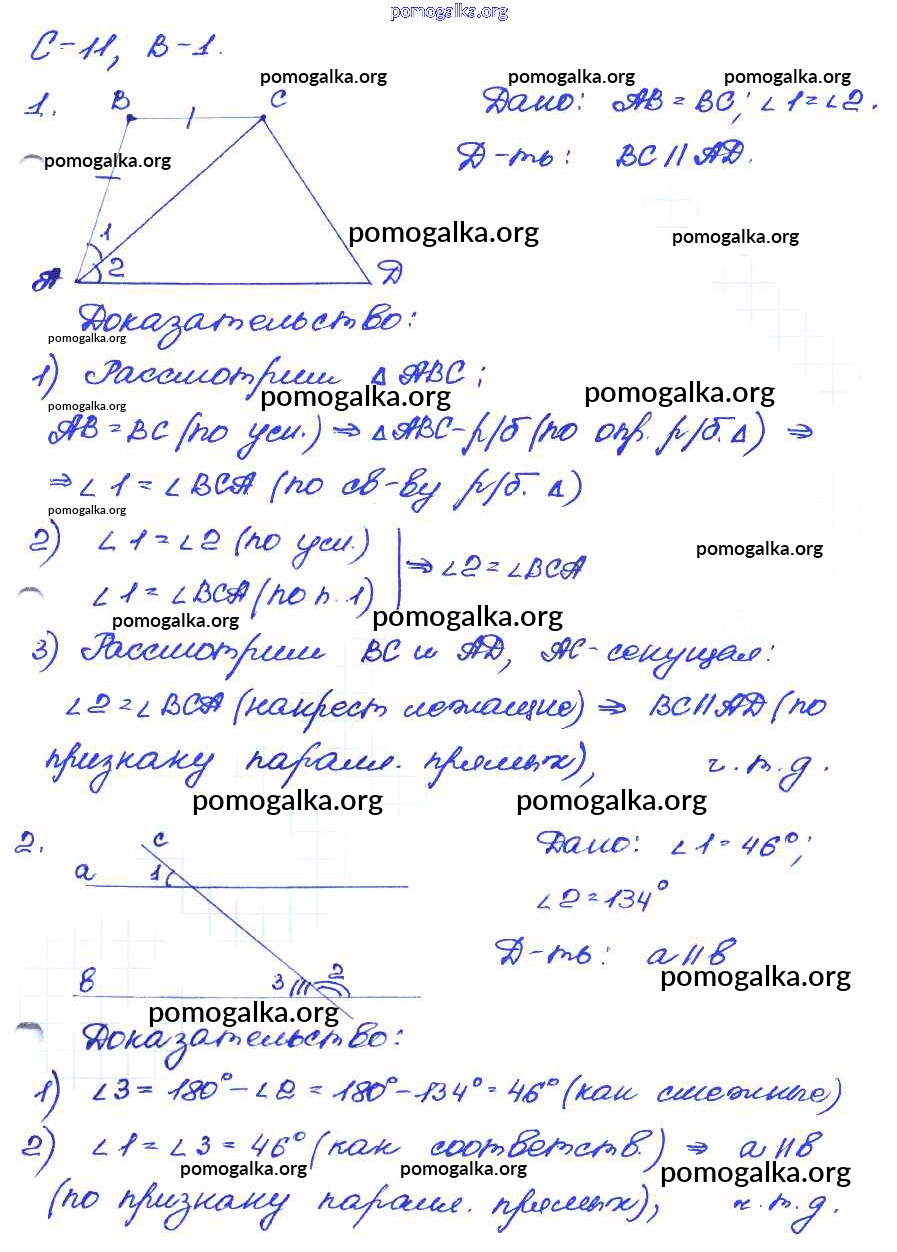 pomogalka.org
С-11, В-1.
pomogalka.org pomogalka.org pomogalka.org
1. B C Дано: AB = BC; ∠1 = ∠2.
pomogalka.org Д-ть: BC || AD.
1
pomogalka.org pomogalka.org
A 2 D
Доказательство:
pomogalka.org
1) Рассмотрим △ABC;
pomogalka.org pomogalka.org
pomogalka.org
AB = BC (по усл.) ⇒ △ABC - р/б (по опр. р/б. △) ⇒
⇒ ∠1 = ∠BCA (по св-ву р/б. △)
pomogalka.org
2) ∠1 = ∠2 (по усл.)
∠1 = ∠BCA (по п. 1) ⇒ ∠2 = ∠BCA
pomogalka.org
pomogalka.org pomogalka.org
3) Рассмотрим BC и AD, AC - секущая:
∠2 = ∠BCA (накрест лежащие) ⇒ BC || AD (по
признаку паралл. прямых), ч.т.д.
pomogalka.org pomogalka.org
2. c Дано: ∠1 = 46°;
a 1
∠2 = 134°
Д-ть: a || в
в 3 2
pomogalka.org
pomogalka.org
Доказательство:
1) ∠3 = 180° - ∠2 = 180° - 134° = 46° (как смежные)
2) ∠1 = ∠3 = 46° (как соответств.) ⇒ a || в
pomogalka.org pomogalka.org pomogalka.org
(по признаку паралл. прямых), ч.т.д.